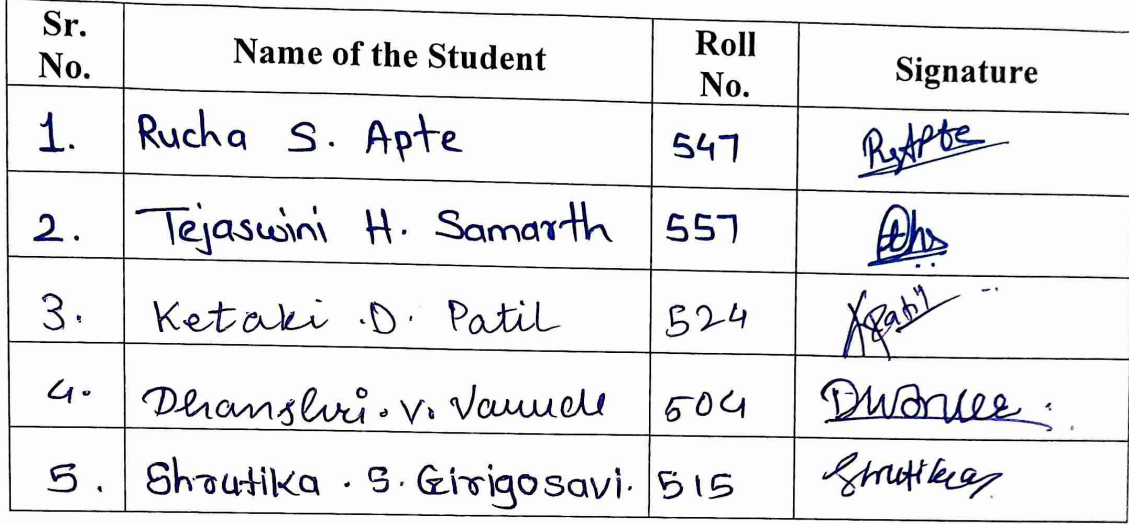 Sr. No. Name of the Student Roll No. Signature
1. Rucha S. Apte 547 RsApte
2. Tejaswini H. Samarth 557
3. Ketaki .D. Patil 524 Patil
4. Dhanshri. V. 504
5. Shrutika . S. Girigosavi. 515 Shrutika